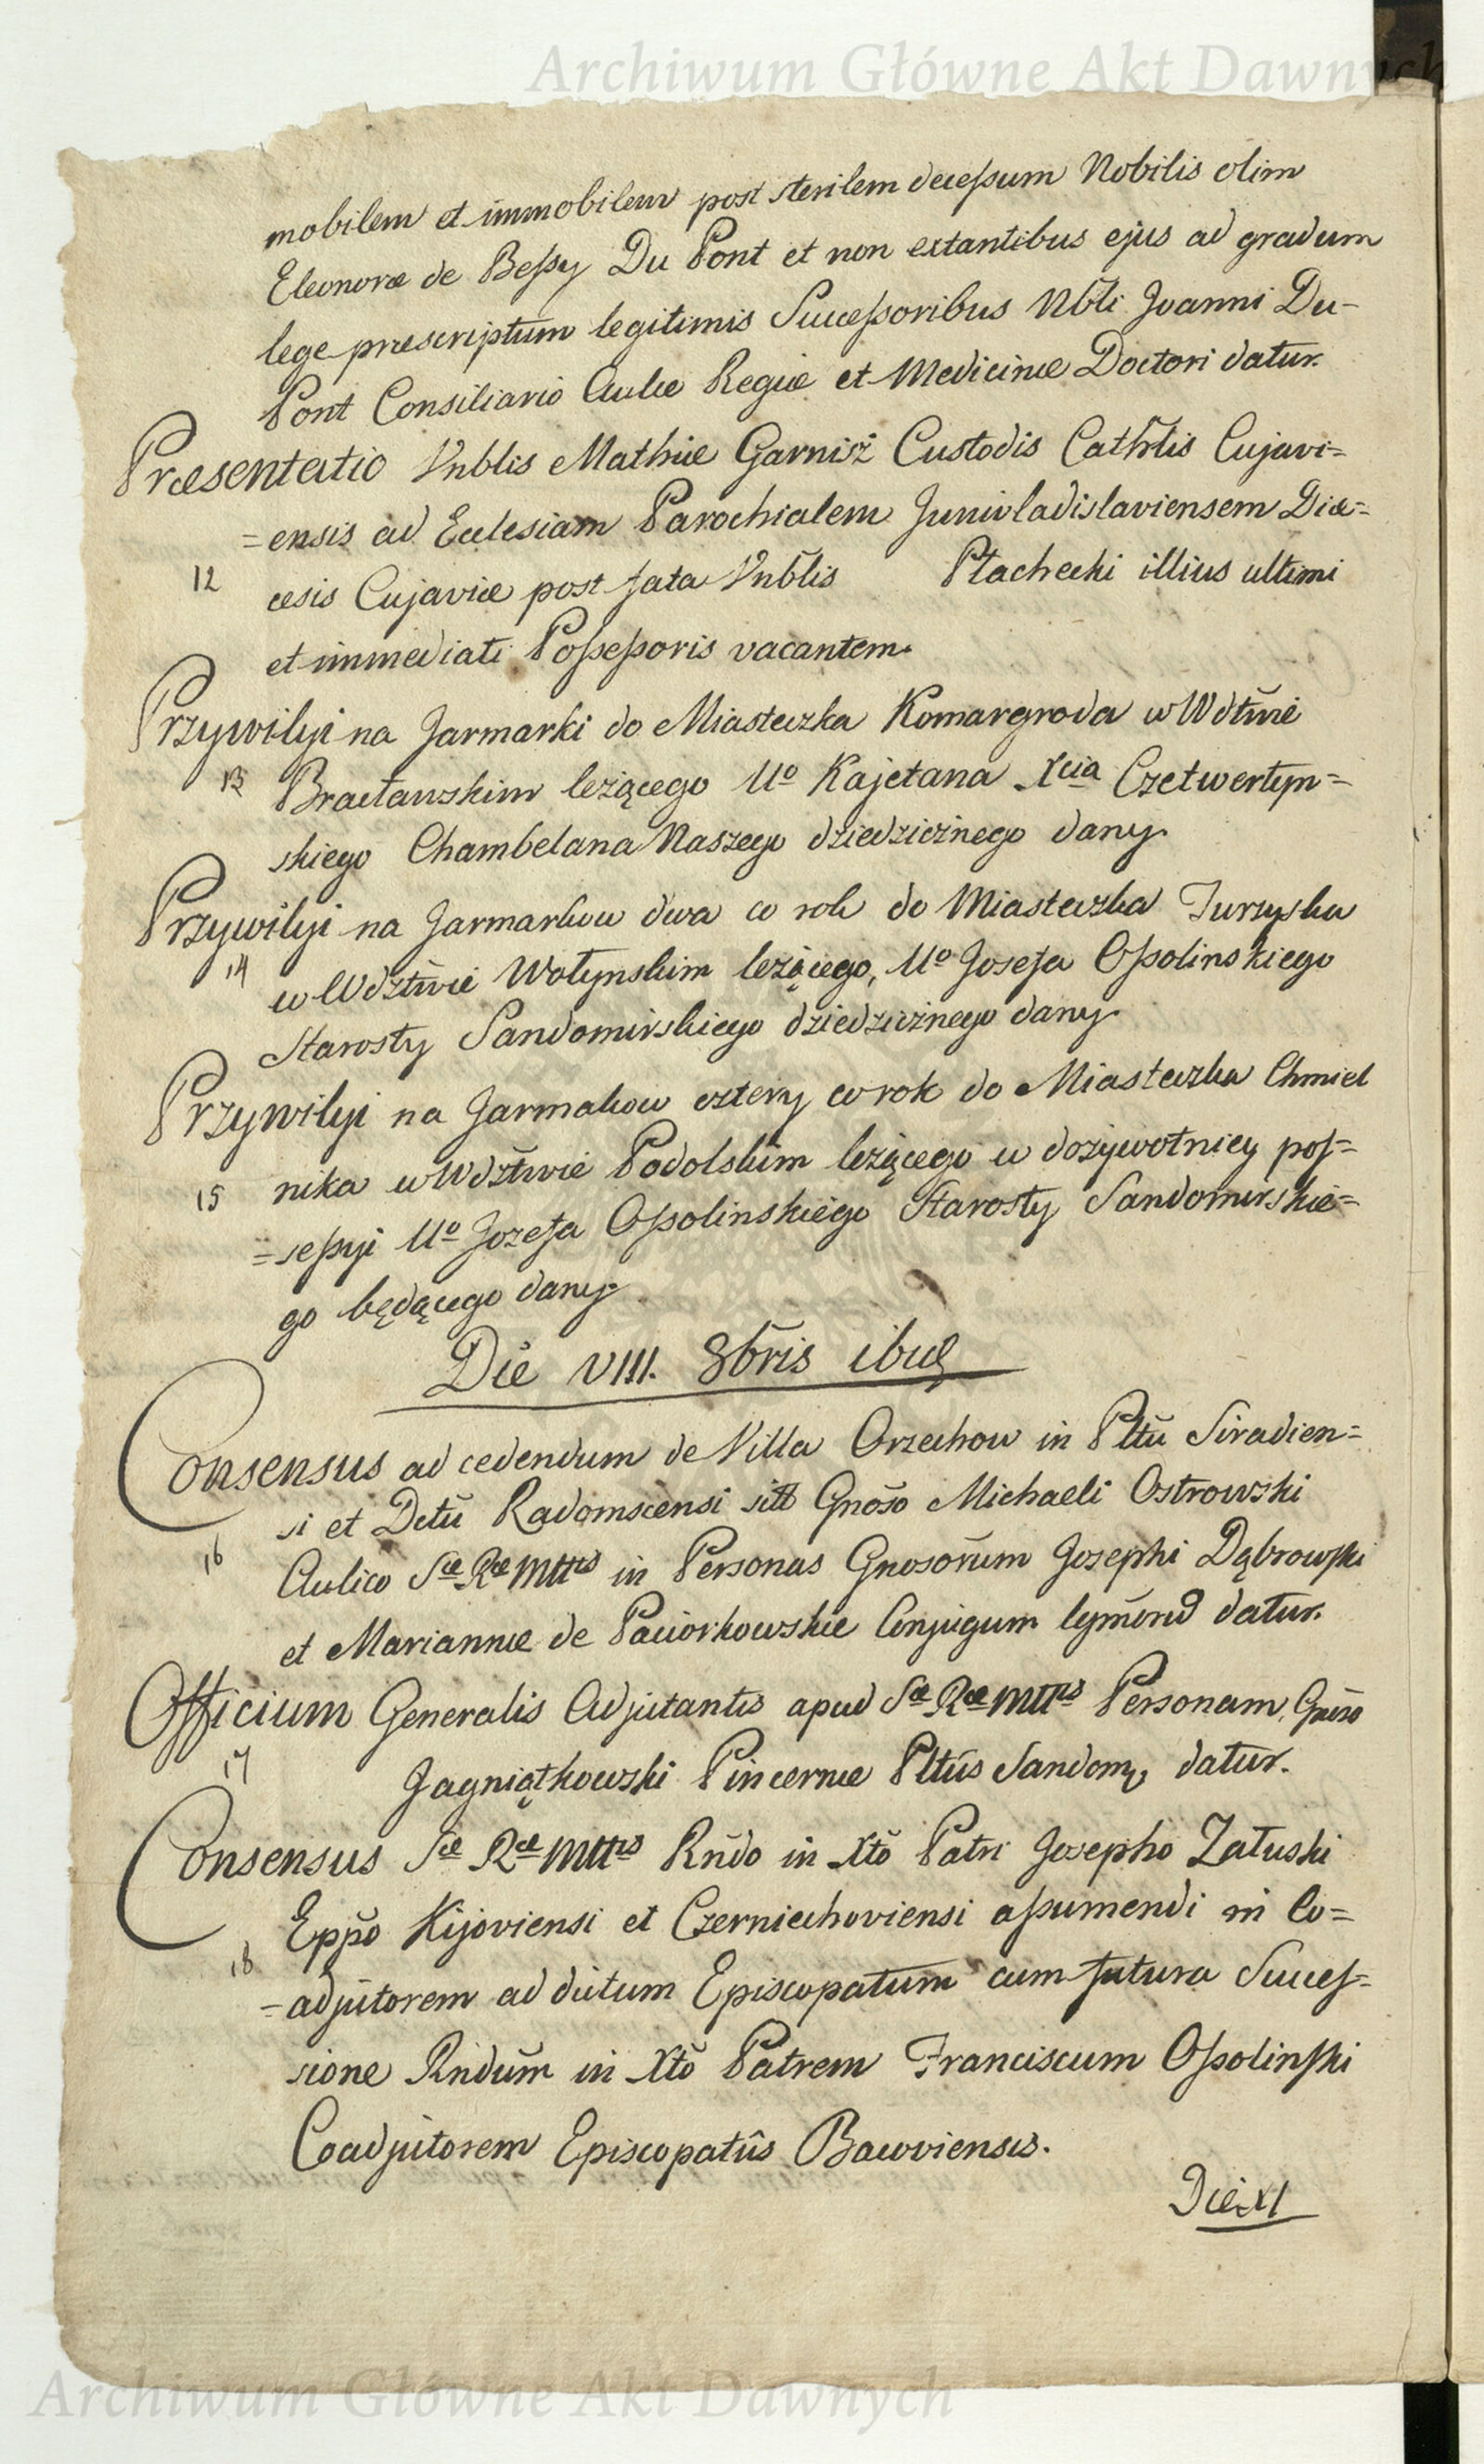 Archiwum Główne Akt Dawnych
mobilem et immobilem post sterilem deceſsum Nobilis olim
Eleonoræ de Beſsy Du Pont et non extantibus ejus ad gradum
lege præscriptum legitimis Succeſsoribus Nbli Joanni Du-
Pont Consiliario Aulæ Regiæ et Medicinæ Doctori datur.
Præsentatio Vnblis Mathiæ Garnisz Custodis Cathlis Cujavi=
=ensis ad Ecclesiam Parochialem Junivladislaviensem Diæ=
12 cesis Cujaviæ post fata Vnblis Płachecki illius ultimi
et immediati Poſseſsoris vacantem.
Przywiley na Jarmarki do Miasteczka Komargroda w Wdztwie
13 Bracławskim leżącego Uo Kajetana Xcia Czetwertyn=
skiego Chambelana Naszego dziedzicznego dany.
Przywiley na Jarmarkow dwa co rok do Miasteczka Turzyska
14 w Wdztwie Wołynskim leżącego, Uo Josefa Oſsolinskiego
Starosty Sandomirskiego dziedzicznego dany.
Przywiley na Jarmakow cztery co rok do Miasteczka Chmiel
15 nika w Wdztwie Podolskim leżącego w dożywotniey poſ=
=seſsyi Uo Jozefa Oſsolinskiego Starosty Sandomirskie=
go będącego dany.
Die VIII. 8bris ibid
Consensus ad cedendum de Villa Orzechow in Pltu Siradien=
si et Dctu Radomscensi sitt Gnoso Michaeli Ostrowski
16 Aulico Sæ Ræ Mttis in Personas Gnosorum Josephi Dąbrowſki
et Mariannæ de Paciorkowskie Conjugum lgmorum datur.
Officium Generalis Adjutantis apud Sæ Ræ Mttis Personam, Gnoso
17 Jagniątkowski Pincernæ Pltus Sandom, datur.
Consensus Sæ Ræ Mttis Rndo in Xto Patri Josepho Załuski
Eppo Kijoviensi et Czerniechoviensi aſsumendi in Co=
18 =adjutorem ad dictum Episcopatum cum futura Succeſ=
sione Rndum in Xto Patrem Franciscum Oſsolinſki
Coadjutorem Episcopatûs Bacoviensis.
Die XI
Archiwum Główne Akt Dawnych